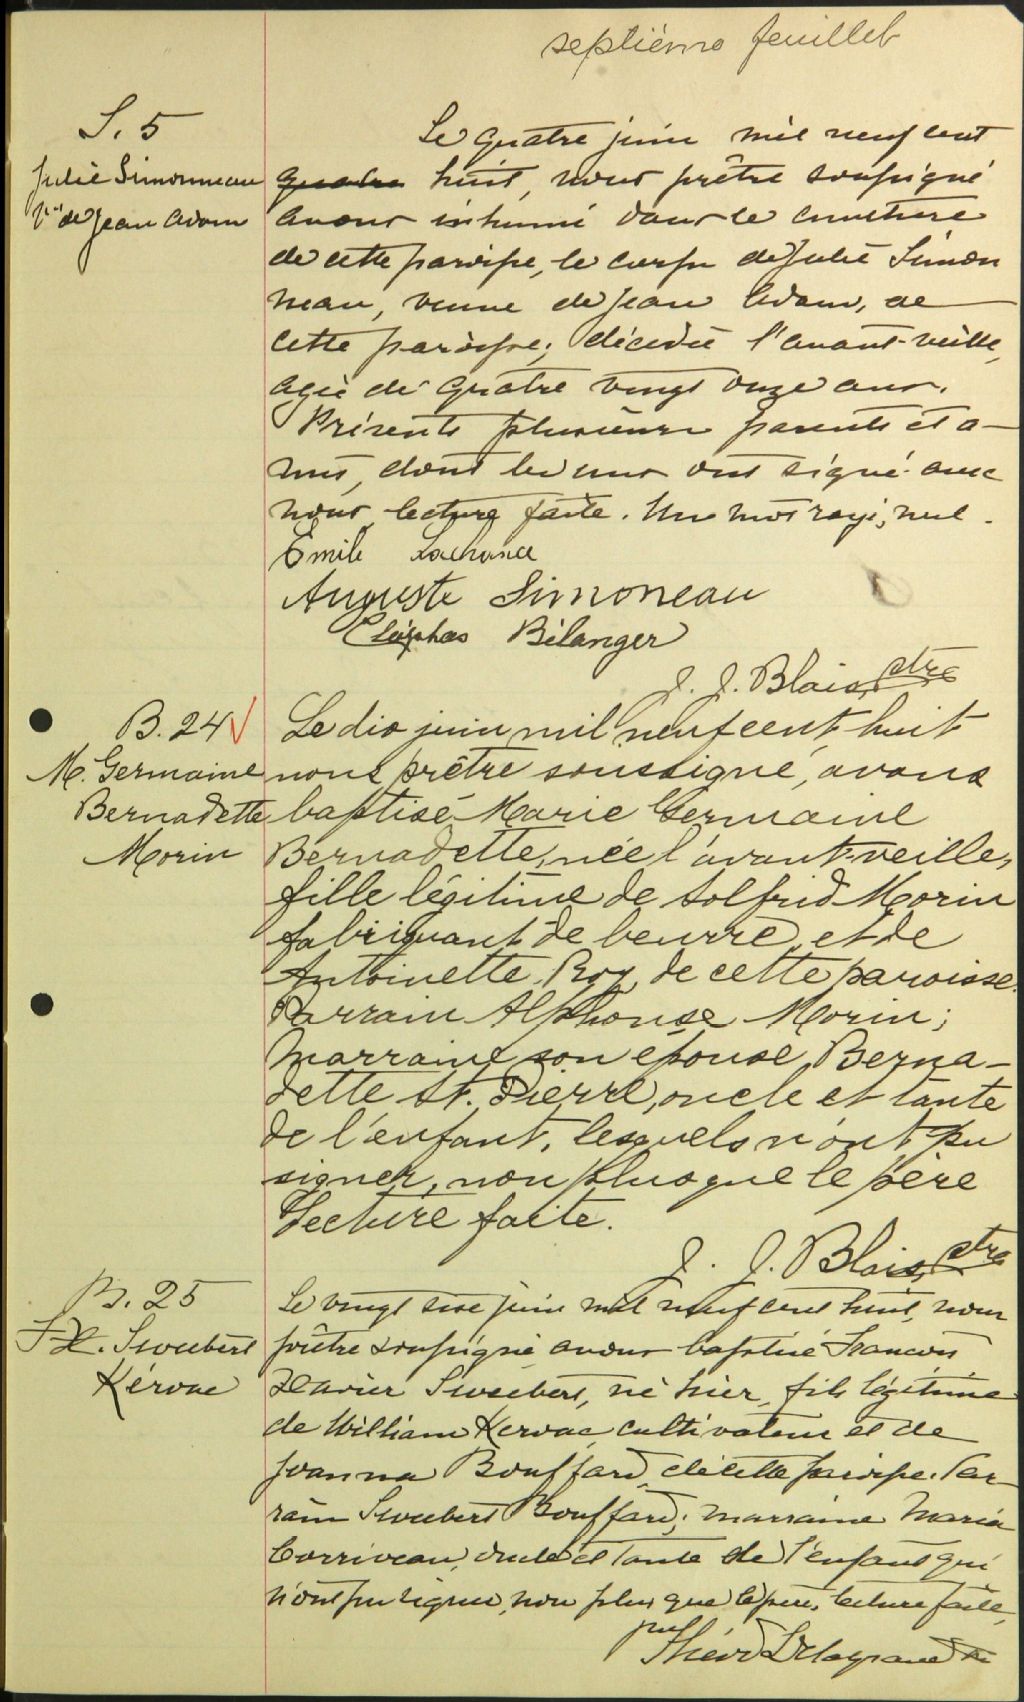 septième feuillet
S. 5
Julie Simonneau
Vve de Jean Adam
Le quatre juin mil neuf cent
quatre huit, nous prêtre soussigné
avons inhumé dans le cimetière
de cette paroisse, le corps de Julie Simon
neau, veuve de Jean Adam, de
cette paroisse, décédée l'avant-veille,
agée de quatre vingt onze ans.
Présents plusieurs parents et a-
mis, dont les uns ont signé avec
nous, lecture faite. Un mot rayé, nul.
Emile Lachance
Auguste Simoneau
Cléophas Bélanger
J. J. Blais, ptre
B. 24
M. Germaine
Bernadette
Morin
Le dix juin mil neuf cent huit
nous prêtre soussigné, avons
baptisé Marie Germaine
Bernadette, née l'avant-veille,
fille légitime de Solfrid Morin
fabriquant de beurre, et de
Antoinette Roy, de cette paroisse.
Parrain Alphonse Morin;
marraine son épouse, Berna-
dette St. Pierre, oncle et tante
de l'enfant, lesquels n'ont pu
signer, non plus que le père
Lecture faite.
J. J. Blais, ptre
B. 25
F. X. Swibert
Kérouac
Le vingt six juin mil neuf cent huit, nous
prêtre soussigné, avons baptisé Francois
Xavier Swibert, né hier, fils légitime
de William Kerouac, cultivateur et de
Joanna Bouffard, de cette paroisse. Par-
rain Swibert Bouffard; marraine Maria
Corriveau, oncle et tante de l'enfant qui
n'ont pu signer, non plus que le père, lecture faite,